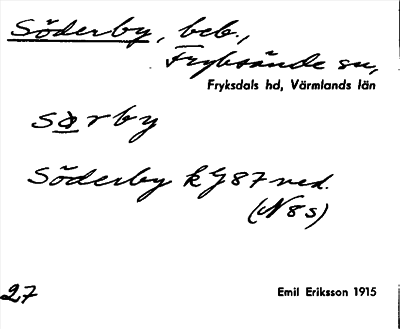 Söderby, beb.,
Fryksände sn,
Fryksdals hd, Värmlands län
sərby
Söderby kG87 ned.
(N8s)
27
Emil Eriksson 1915